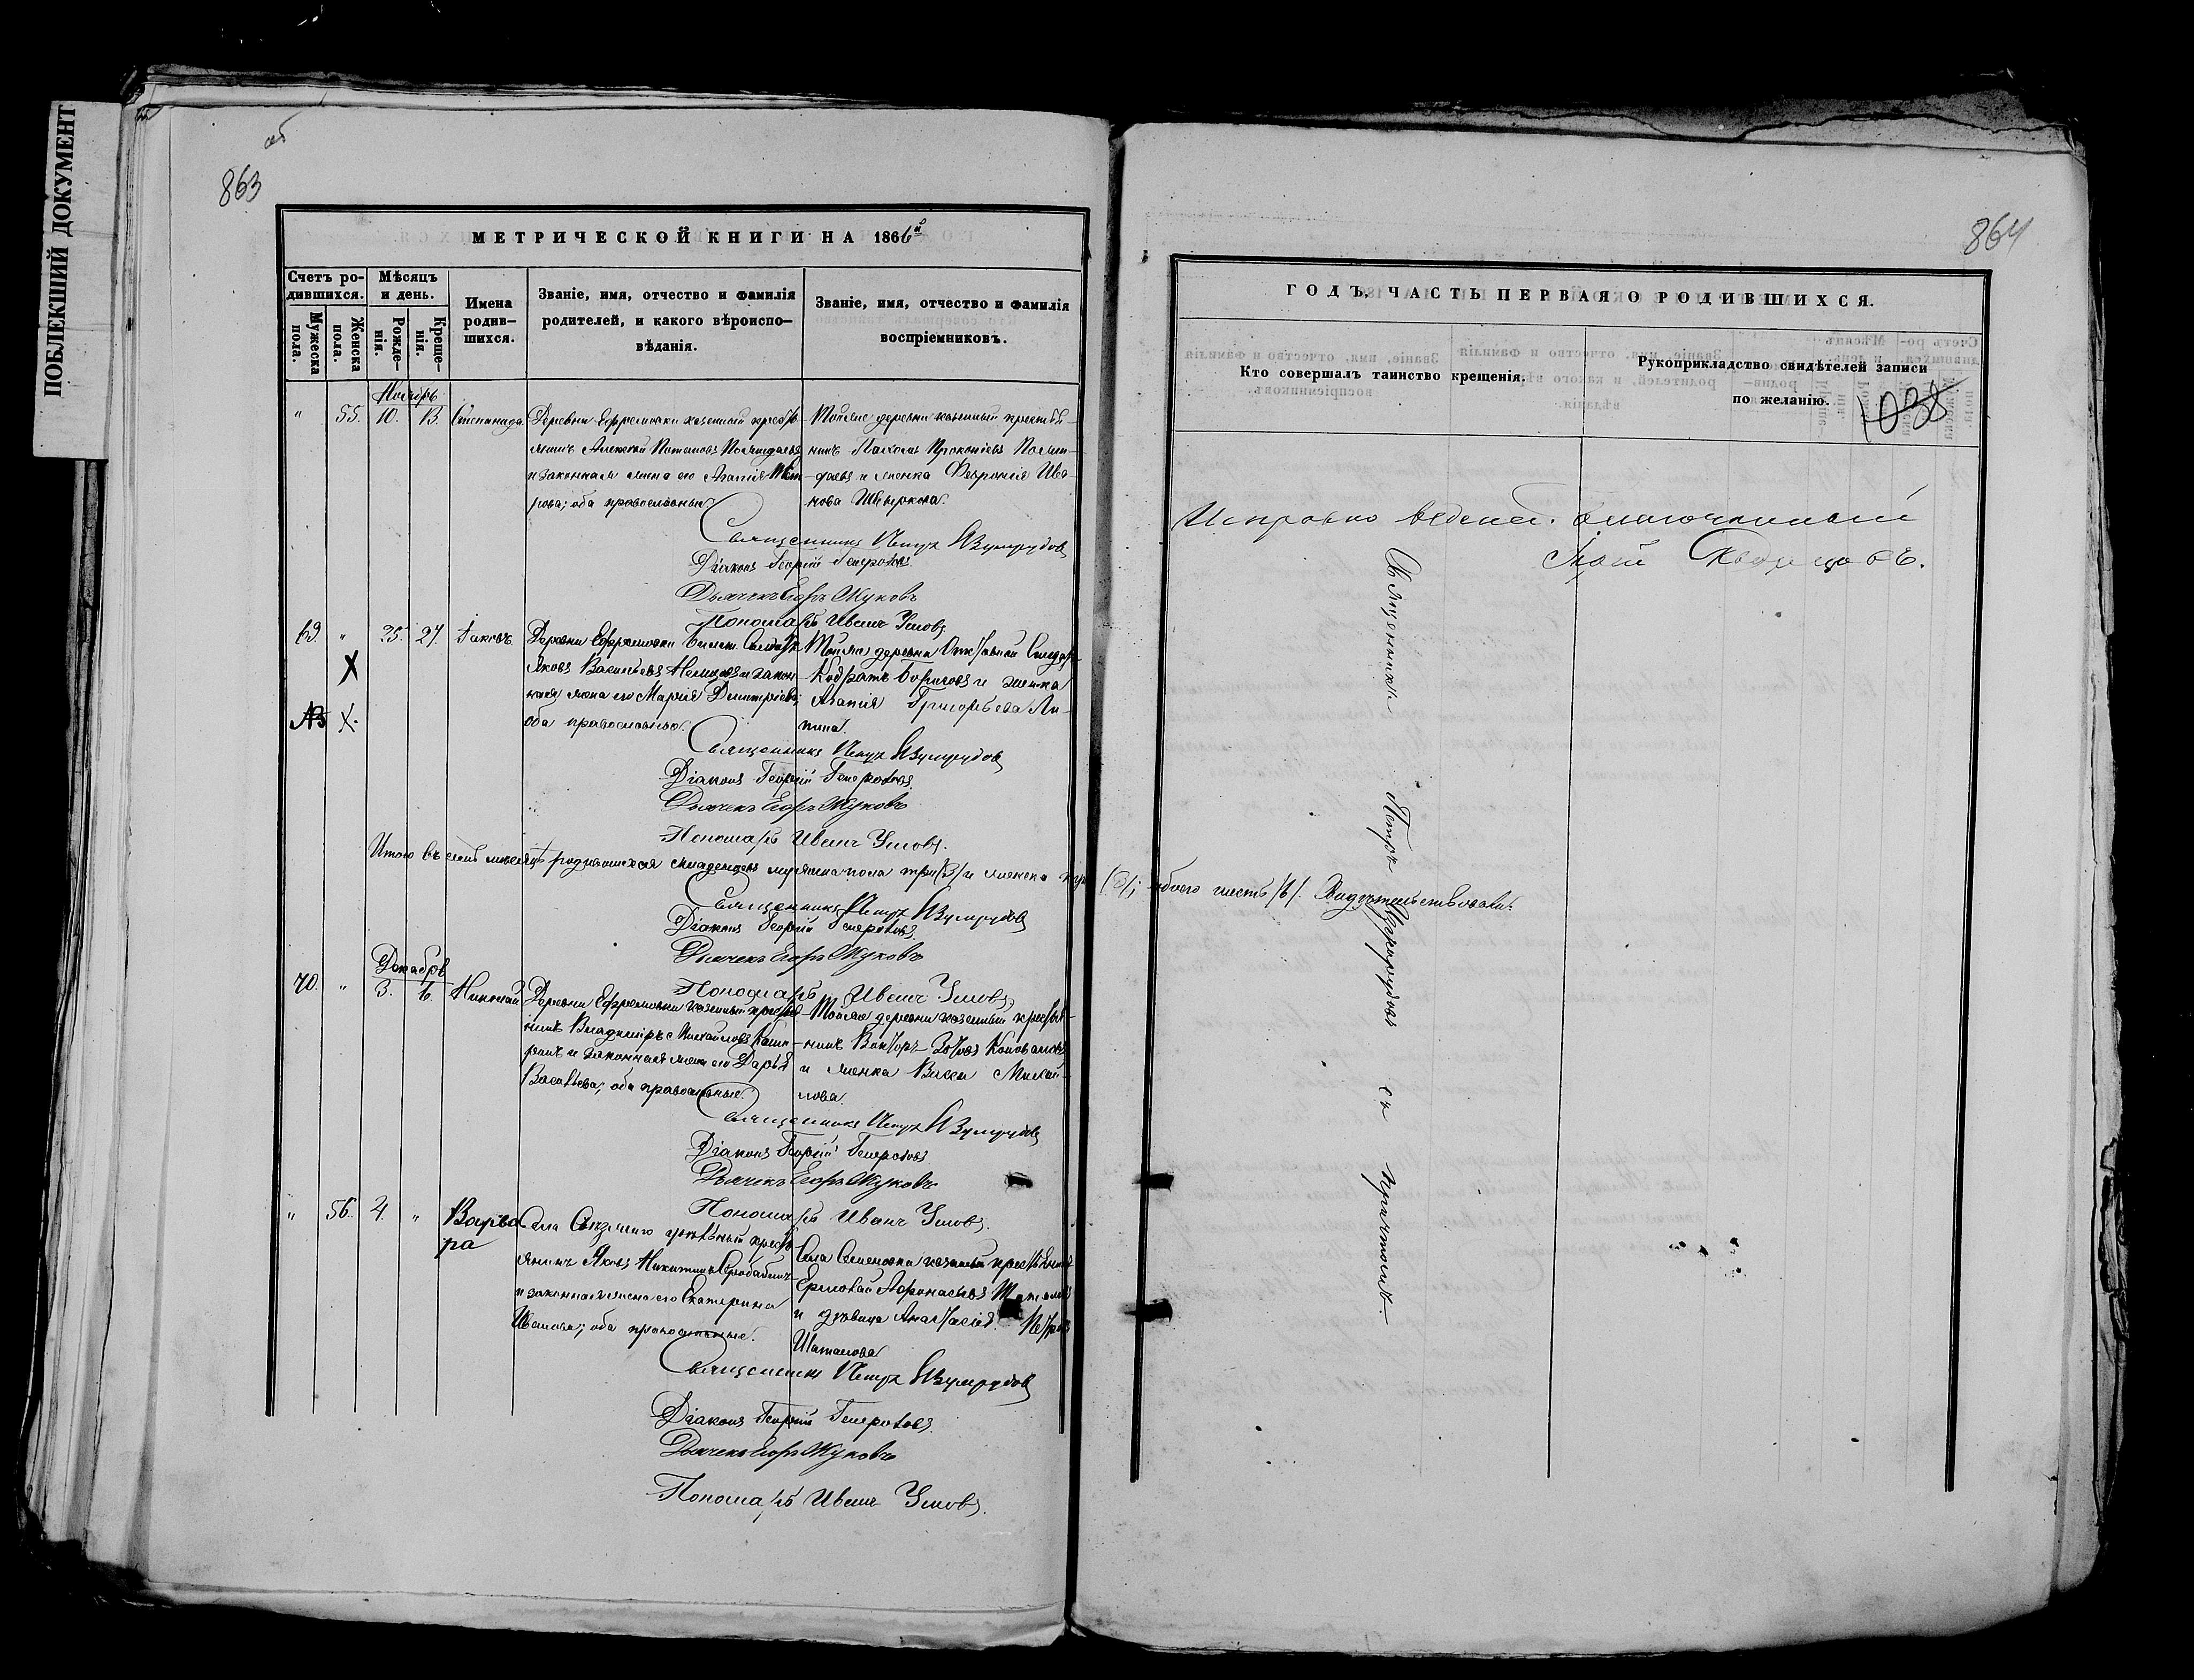 ПОБЛЕКШИЙ ДОКУМЕНТ
об
863
МЕТРИЧЕСКОЙ КНИГИ НА 1866й
Счетъ ро-
дившихся.
Мужеска
пола.
Женска
пола.
Мѣсяцъ
и день.
Рожде-
нія.
Креще-
нія.
Имена
родив-
шихся.
Званіе, имя, отчество и фамилія
родителей, и какого вѣроиспо-
вѣданія.
Званіе, имя, отчество и фамилія
воспріемниковъ.
Ноябрь
" 55. 10. 13. Степанида
Деревни Ефремовки казенный крестья-
нинъ Алексѣй Потаповъ
и законная жена его Агапія Пет-
рова; оба православные.
Тойже деревни казенный крестья-
нинъ Пахомъ Прокопіевъ
и женка Февронія Ива-
нова Швыркова.
Священникъ Петръ Изумрудовъ
Діаконъ Георгій Генерозовъ
Дьячекъ Егоръ Жуковъ
Пономарь Иванъ Умовъ.
69. " 25. 27. Іаковъ
Деревни Ефремовки билет. Солдатъ
Яковъ Васильевъ и закон-
ная жена его Марія Димитріева;
оба православные.
Тойже деревни Отставной Солдатъ
Кодратъ Борисовъ и женка
Агапія Григорьева Ля-
пина.
Священникъ Петръ Изумрудовъ
Діаконъ Георгій Генерозовъ
Дьячекъ Егоръ Жуковъ
Пономарь Иванъ Умовъ.
Итого въ семъ мѣсяцѣ родившихся младенцевъ мужеска пола три /3/ и женска три /3/; обоего шесть /6/. Свидѣтельствовали:
Священникъ Петръ Изумрудовъ
Діаконъ Георгій Генерозовъ
Дьячекъ Егоръ Жуковъ
Пономарь Иванъ Умовъ.
Декабрь
70. " 3. 6. Николай
Деревни Ефремовки казенный крестья-
нинъ Владиміръ Михайловъ
и законная жена его Дарья
Васильева; оба православные.
Тойже деревни казенный крестья-
нинъ Викторъ Зотовъ Коноваловъ
и женка Васса Михай-
лова.
Священникъ Петръ Изумрудовъ
Діаконъ Георгій Генерозовъ
Дьячекъ Егоръ Жуковъ
Пономарь Иванъ Умовъ.
" 56. 4. " Варва
ра
Села крестья-
нинъ Яковъ Никитинъ
и законная жена его Екатерина
Иванова; оба православные.
Села Семеновки казенный крестьянинъ
Ермолай Афонасьевъ
и дѣвица Анастасія Петрова
Шаталова
Священникъ Петръ Изумрудовъ
Діаконъ Георгій Генерозовъ
Дьячекъ Егоръ Жуковъ
Пономарь Иванъ Умовъ.
864
ГОДЪ. ЧАСТЬ ПЕРВАЯ О РОДИВШИХСЯ.
Кто совершалъ таинство крещенія.
Рукоприкладство свидѣтелей записи
по желанію.
1038
Исправно веденіе. благочинный
Священникъ Петръ Изумрудовъ съ причтомъ.